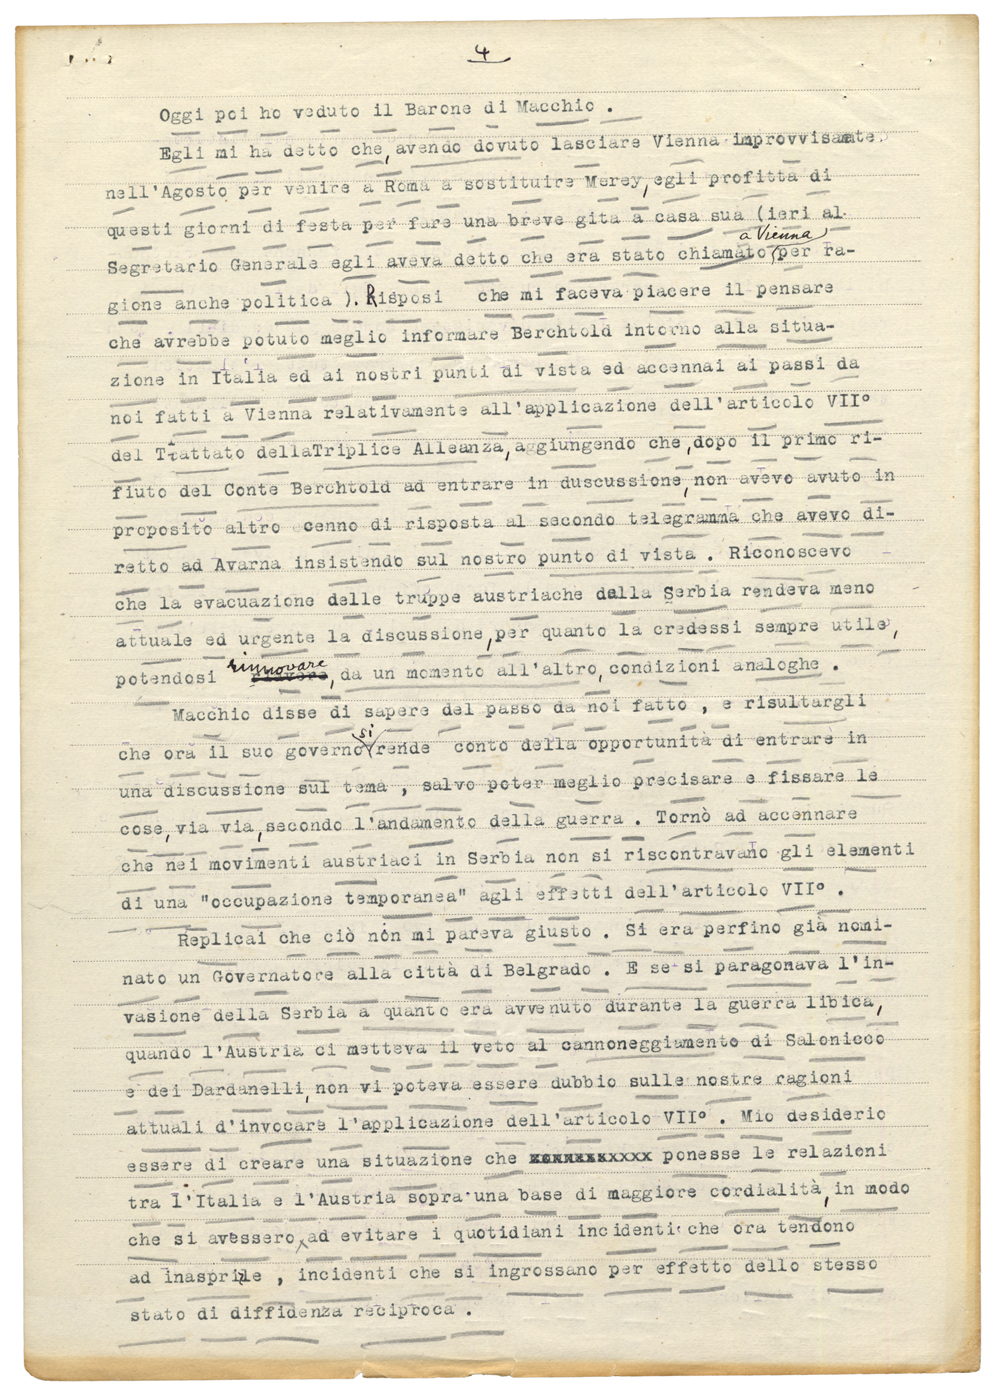 4
Oggi poi ho veduto il Barone di Macchio .
Egli mi ha detto che, avendo dovuto lasciare Vienna improvvisamate
nell'Agosto per venire a Roma a sostituire Merey, egli profitta di
questi giorni di festa per fare una breve gita a casa sua (ieri al
a Vienna
Segretario Generale egli aveva detto che era stato chiamato per ra-
gione anche politica ). Risposi che mi faceva piacere il pensare
che avrebbe potuto meglio informare Berchtold intorno alla situa-
zione in Italia ed ai nostri punti di vista ed accennai ai passi da
noi fatti a Vienna relativamente all'applicazione dell'articolo VII°
del Trattato dellaTriplice Alleanza, aggiungendo che, dopo il primo ri-
fiuto del Conte Berchtold ad entrare in duscussione, non avevo avuto in
proposito altro cenno di risposta al secondo telegramma che avevo di-
retto ad Avarna insistendo sul nostro punto di vista . Riconoscevo
che la evacuazione delle truppe austriache dalla Serbia rendeva meno
attuale ed urgente la discussione, per quanto la credessi sempre utile,
potendosi rinnovare, da un momento all'altro, condizioni analoghe .
Macchio disse di sapere del passo da noi fatto , e risultargli
che ora il suo governo si rende conto della opportunità di entrare in
una discussione sul tema , salvo poter meglio precisare e fissare le
cose, via via, secondo l'andamento della guerra . Tornò ad accennare
che nei movimenti austriaci in Serbia non si riscontravano gli elementi
di una "occupazione temporanea" agli effetti dell'articolo VII° .
Replicai che ciò non mi pareva giusto . Si era perfino già nomi-
nato un Governatore alla città di Belgrado . E se si paragonava l'in-
vasione della Serbia a quanto era avvenuto durante la guerra libica,
quando l'Austria ci metteva il veto al cannoneggiamento di Salonicco
e dei Dardanelli, non vi poteva essere dubbio sulle nostre ragioni
attuali d'invocare l'applicazione dell'articolo VII° . Mio desiderio
essere di creare una situazione che ponesse le relazioni
tra l'Italia e l'Austria sopra una base di maggiore cordialità, in modo
che si avessero ad evitare i quotidiani incidenti che ora tendono
ad inasprile , incidenti che si ingrossano per effetto dello stesso
stato di diffidenza reciproca .